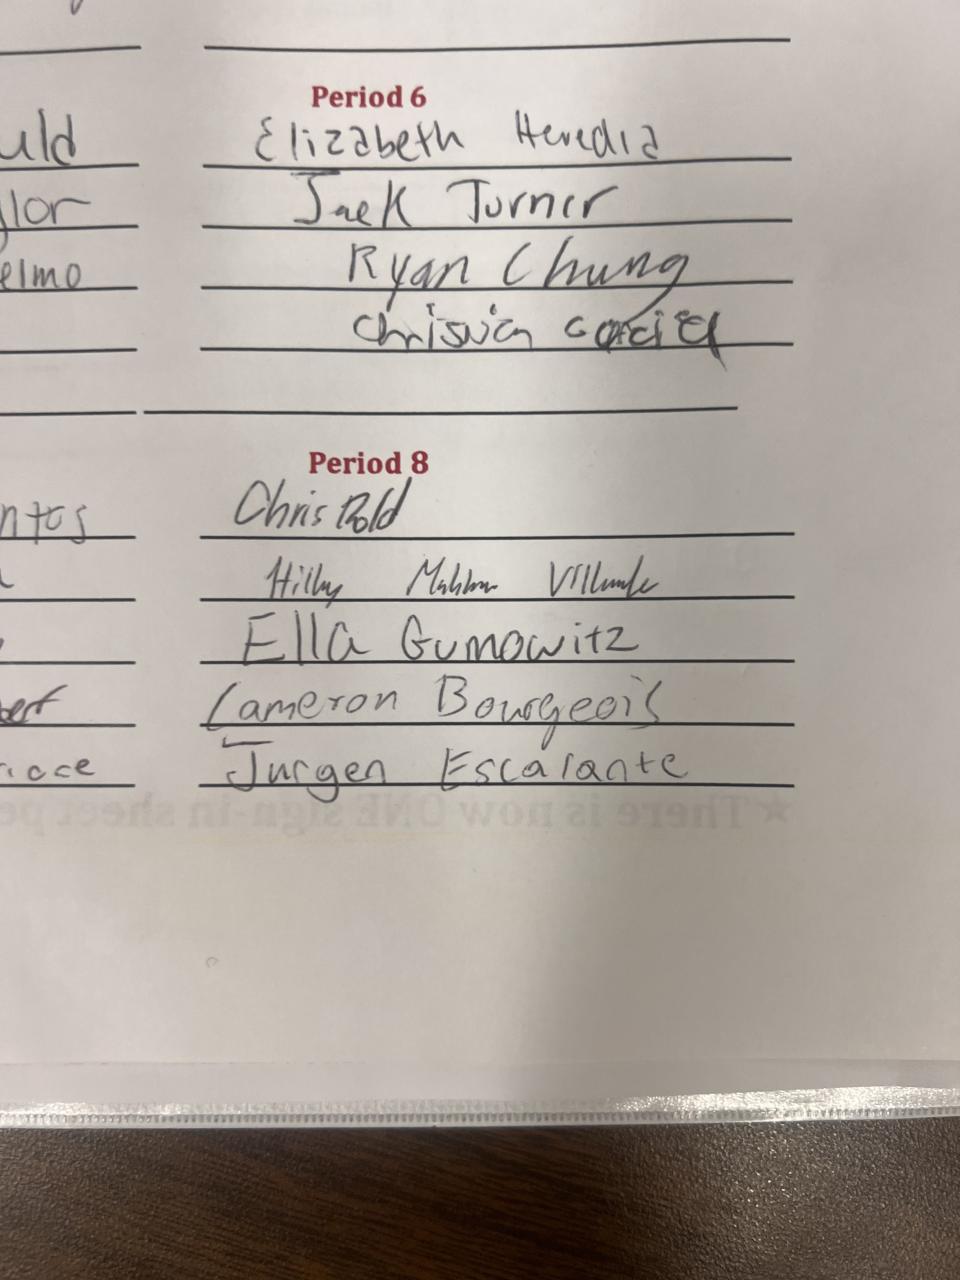 Period 6
uld Elizabeth Heredia
ylor Jack Turner
elmo Ryan Chung
Garcia
Period 8
ntos Chris
Ella Gumowitz
bert Cameron Bourgeois
Jurgen Escalante
★ There is now ONE sign-in sheet pe